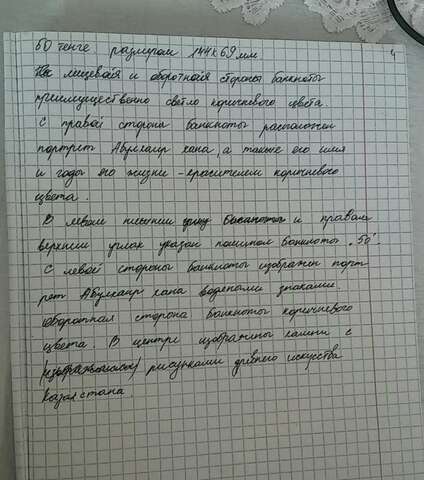 50 тенге размером 144х69 мм. 4
На лицевойя и оборотнойя стороны банкноты
преимущественно светло коричневого цвета.
С правой стороны банкноты расположен
портрет Абулхаир хана, а также его имя
и годы его жизни - красителем коричневого
цвета.
В левом нижнем углу банкноты и правом
верхнем углах указан номинал банкноты "50".
С левой стороны банкноты изображен порт
рет Абулхаир хана водеными знаками.
Оборотная сторона банкноты коричневого
цвета. В центре изображены камни с
(изображением) рисунками древнего искусства
Казахстана.